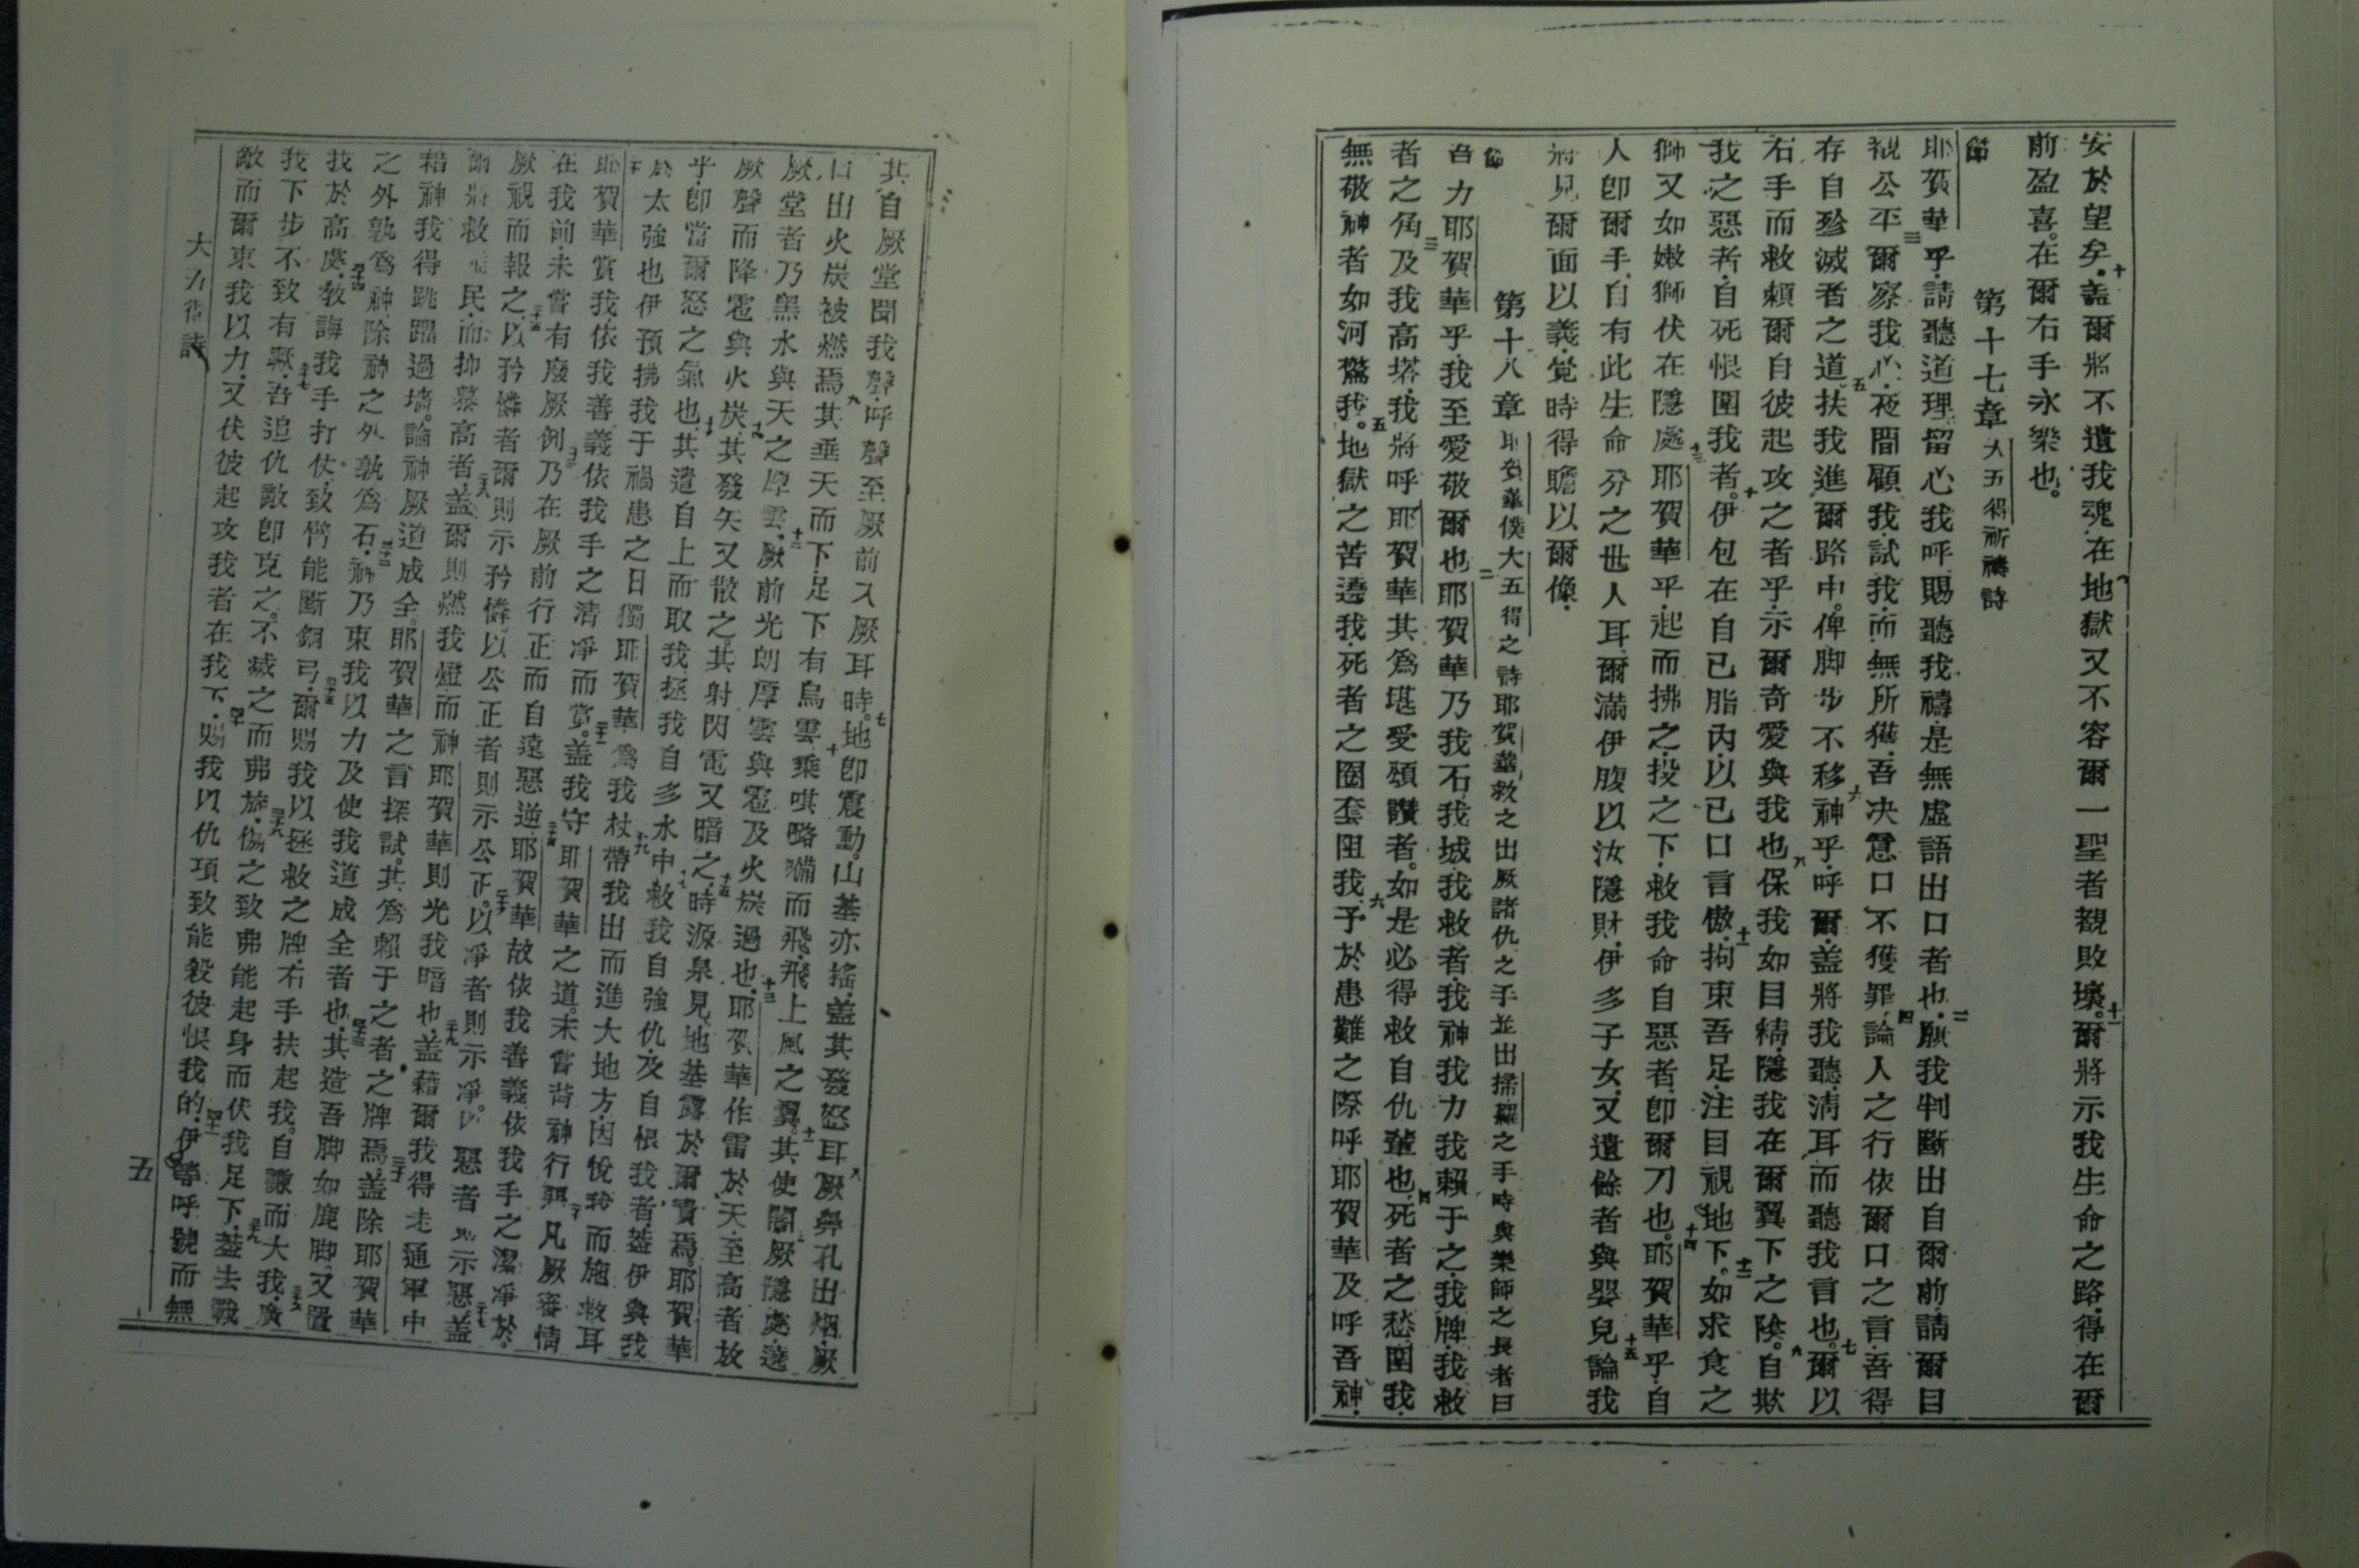 安於望矣盖爾將不遺我魂在地獄又不容爾一聖者覩敗壞爾將示我生命之路得在爾
前盈喜在爾右手永樂也
第十七章 大五得祈禱詩
節
耶賀華乎請聽道理留心我呼賜聽我禱是無虛語出口者也二願我判斷出自爾前請爾目
視公平三爾察我心夜間顧我試我而無所獲吾决意口不獲罪四論人之行依爾口之言吾得
存自殄滅者之道五扶我進爾路中俾脚步不移六神乎呼爾盖將我聽清耳而聽我言也七爾以
右手而救賴爾自彼起攻之者乎示爾奇愛與我也八保我如目精隱我在爾翼下之陰九自欺
我之惡者自死恨圍我者十伊包在自已脂內以已口言傲十一拘束吾足注目視地下十二如求食之
獅又如嫩獅伏在隱處十三耶賀華乎起而拂之投之下救我命自惡者卽爾刀也十四耶賀華乎自
人卽爾手自有此生命分之世人耳爾滿伊腹以汝隱財伊多子女又遺餘者與嬰兒十五論我
將見爾面以義覺時得瞻以爾像
第十八章 耶賀華僕大五得之詩耶賀華救之出厥諸仇之手並出掃羅之手時與樂師之長者曰
節
吾力耶賀華乎我至愛敬爾也二耶賀華乃我石我城我救者我神我力我賴于之我牌我救
者之角及我高塔三我將呼耶賀華其爲堪受頌讚者如是必得救自仇輩也四死者之愁圍我
無敬神者如河驚我五地獄之苦遶我死者之圈套阻我六予於患難之際呼耶賀華及呼吾神
其自厥堂聞我聲呼聲至厥前入厥耳時七地卽震動山基亦搖盖其發怒耳八厥鼻孔出烟厥
口出火炭被燃焉九其垂天而下足下有烏雲十乘㖵略𠸄而飛飛上風之翼十一其使闇厥隱處遶
厥堂者乃黑水與天之厚雲十二厥前光朗厚雲與雹及火炭過也十三耶賀華作雷於天至高者放
厥聲而降雹與火炭十四其發矢又散之其射閃電又暗之十五時源泉見地基露於爾責焉耶賀華
乎卽當爾怒之氣也十六其遣自上而取我拯我自多水中十七救我自強仇及自恨我者葢伊與我
爲太強也十八伊預拂我于禍患之日獨耶賀華爲我杖十九帶我出而進大地方因悅我而施救耳
二十耶賀華賞我依我善義依我手之清凈而賞二十一盖我守耶賀華之道未嘗背神行惡二十二凡厥審情
在我前未嘗有廢厥例二十三乃在厥前行正而自遠惡逆二十四耶賀華故依我善義依我手之潔凈於
厥視而報之二十五以矜憐者爾則示矜憐以公正者則示公正二十六以凈者則示凈以惡者則示惡二十七盖
爾將救民而抑慕高者二十八盖爾則燃我燈而神耶賀華則光我暗也二十九盖藉爾我得走通軍中
藉神我得跳躍過墻三十論神厥道成全耶賀華之言探試其爲賴于之者之牌焉三十一盖除耶賀華
之外孰爲神除神之外孰爲石三十二神乃束我以力及使我道成全者也三十三其造吾脚如鹿脚又置
我於高處三十四教誨我手打仗致臂能斷銅弓三十五爾賜我以拯救之牌右手扶起我自謙而大我三十六廣
我下步不致有蹶三十七吾追仇敵卽克之不滅之而弗旋三十八傷之致弗能起身而伏我足下三十九葢去戰
敵而爾束我以力又伏彼起攻我者在我下四十賜我以仇項致能殺彼恨我的四十一伊等呼號而無
大五得詩
五